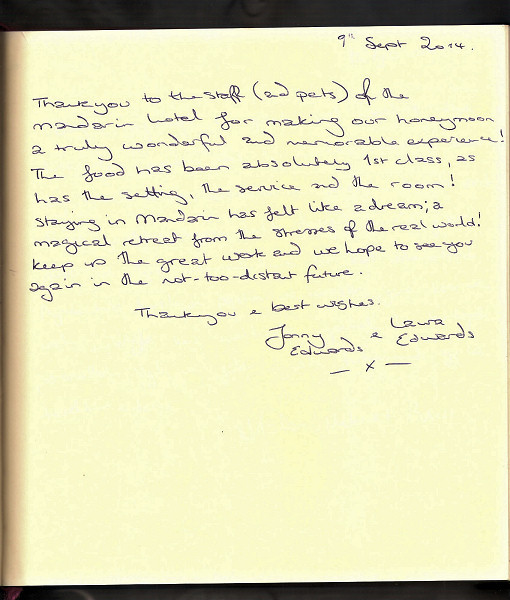 9th Sept 2014.
Thankyou to the staff (and pets) of the
Mandarin hotel for making our honeymoon
a truly wonderful and memorable experience!
The food has been absolutely 1st class, as
has the setting, the service and the room!
Staying in Mandarin has felt like a dream; a
magical retreat from the stresses of the real world!
Keep up the great work and we hope to see you
again in the not-too-distant future.
Thankyou & best wishes.
Jonny & Laura
Edwards Edwards
— x —